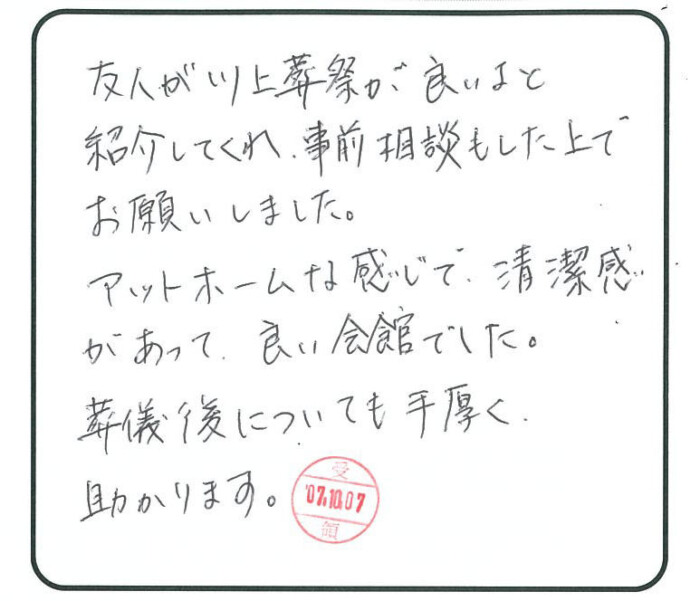 友人が川上葬祭が良いよと
紹介してくれ、事前相談もした上で
お願いしました。
アットホームな感じで、清潔感
があって、良い会館でした。
葬儀後についても手厚く、
助かります。
受
'07.10.07
領